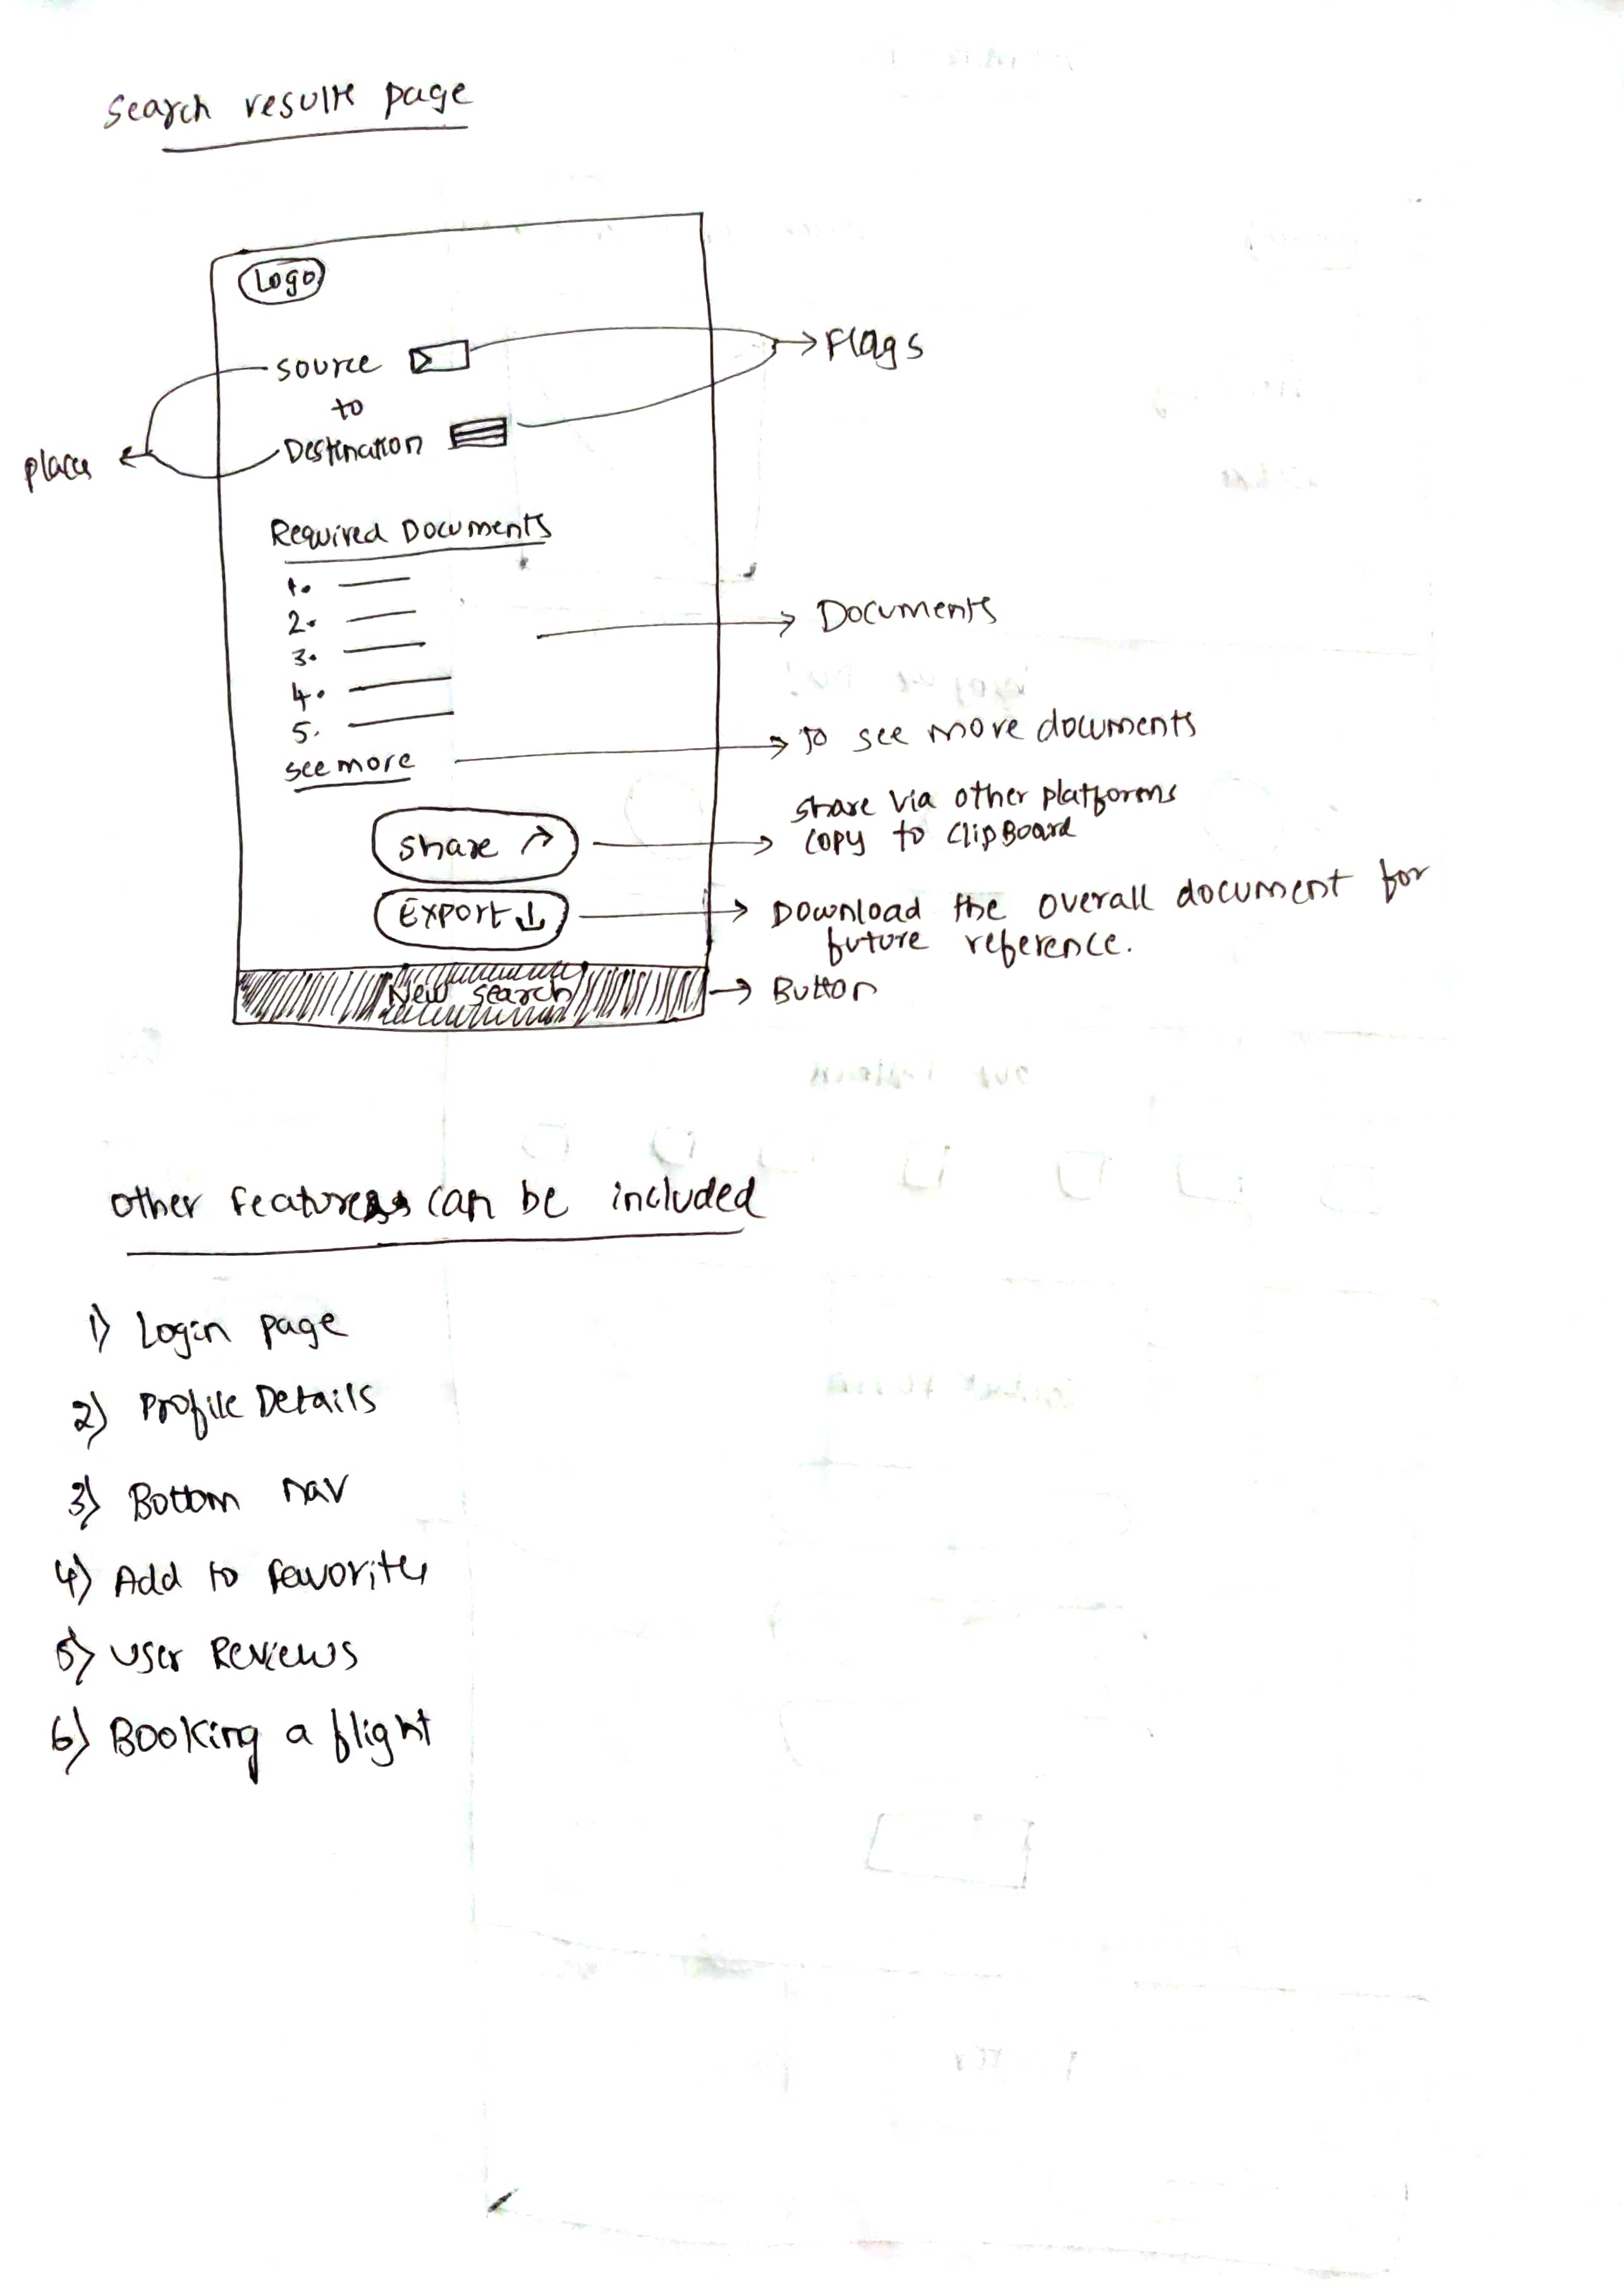 Search results page
Logo
source
to
Destination
Flags
places
Required Documents
1.
2.
3.
4.
5.
see more
Documents
To see more documents
Share
Share via other platforms
copy to clipBoard
Export
Download the overall document for
future reference.
New search
Button
other features can be included
1) Login page
2) Profile Details
3) Bottom nav
4) Add to favorites
5) User Reviews
6) Booking a flight